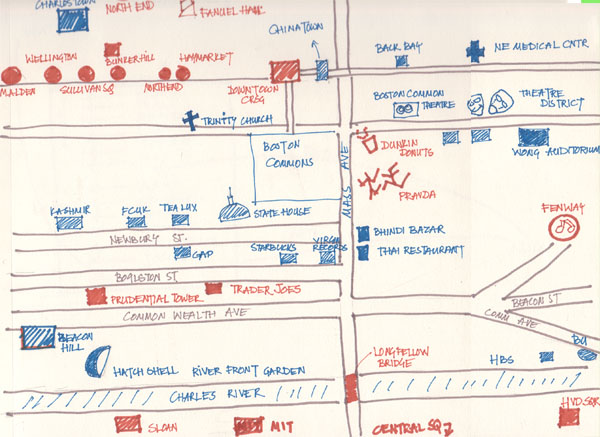 CHARLESTOWN
NORTH END
FANUEIL HALL
CHINATOWN
BACK BAY
NE MEDICAL CNTR
WELLINGTON
BUNKERHILL
HAYMARKET
MALDEN
SULLIVAN SQ
NORTHEND
DOWNTOWN
CRSG
BOSTON COMMON
THEATRE
THEATRE
DISTRICT
TRINITY CHURCH
BOSTON
COMMONS
MASS AVE
DUNKIN
DONUTS
WONG AUDITORIUM
PRAVDA
KASHMIR
FCUK
TEA LUX
STATE HOUSE
FENWAY
NEWBURY ST.
BHINDI BAZAR
GAP
STARBUCKS
VIRGIN
RECORDS
THAI RESTAURANT
BOYLSTON ST
PRUDENTIAL TOWER
TRADER JOES
BEACON ST
COMMON WEALTH AVE
COMM AVE
BEACON
HILL
LONGFELLOW
BRIDGE
HBS
BU
HATCH SHELL
RIVER FRONT GARDEN
CHARLES RIVER
SLOAN
MIT
CENTRAL SQ
HVD SQR